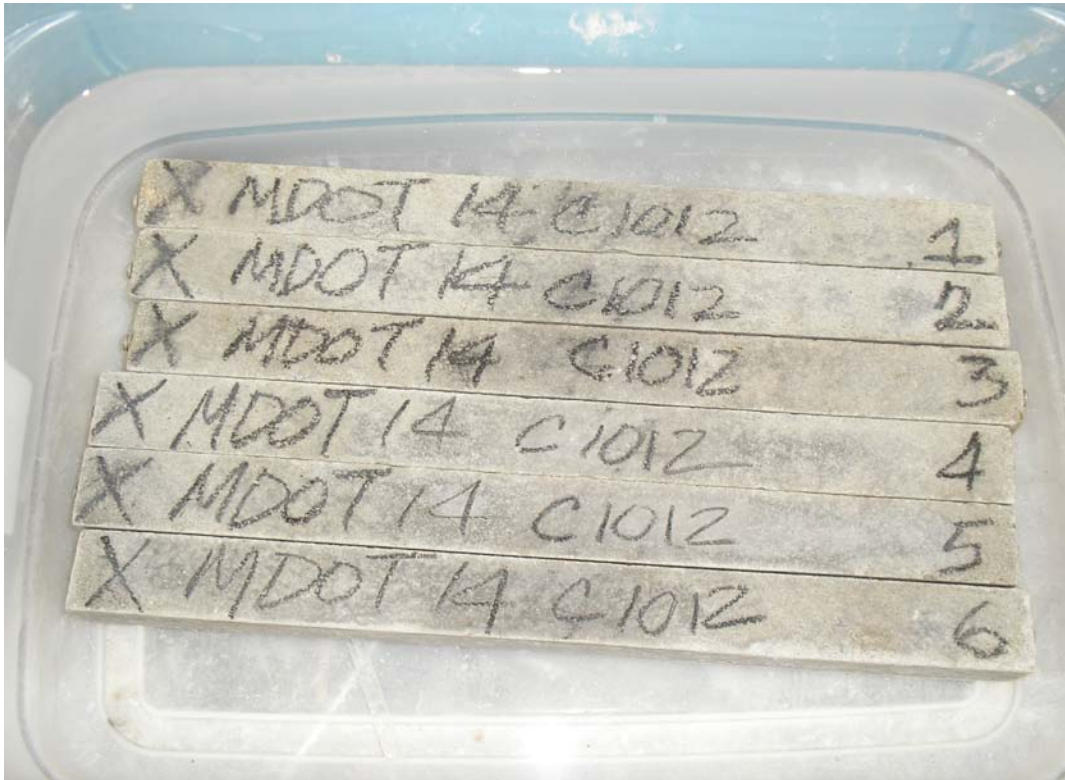 X MDOT 14 C1012 1
X MDOT 14 C1012 2
X MDOT 14 C1012 3
X MDOT 14 C1012 4
X MDOT 14 C1012 5
X MDOT 14 C1012 6